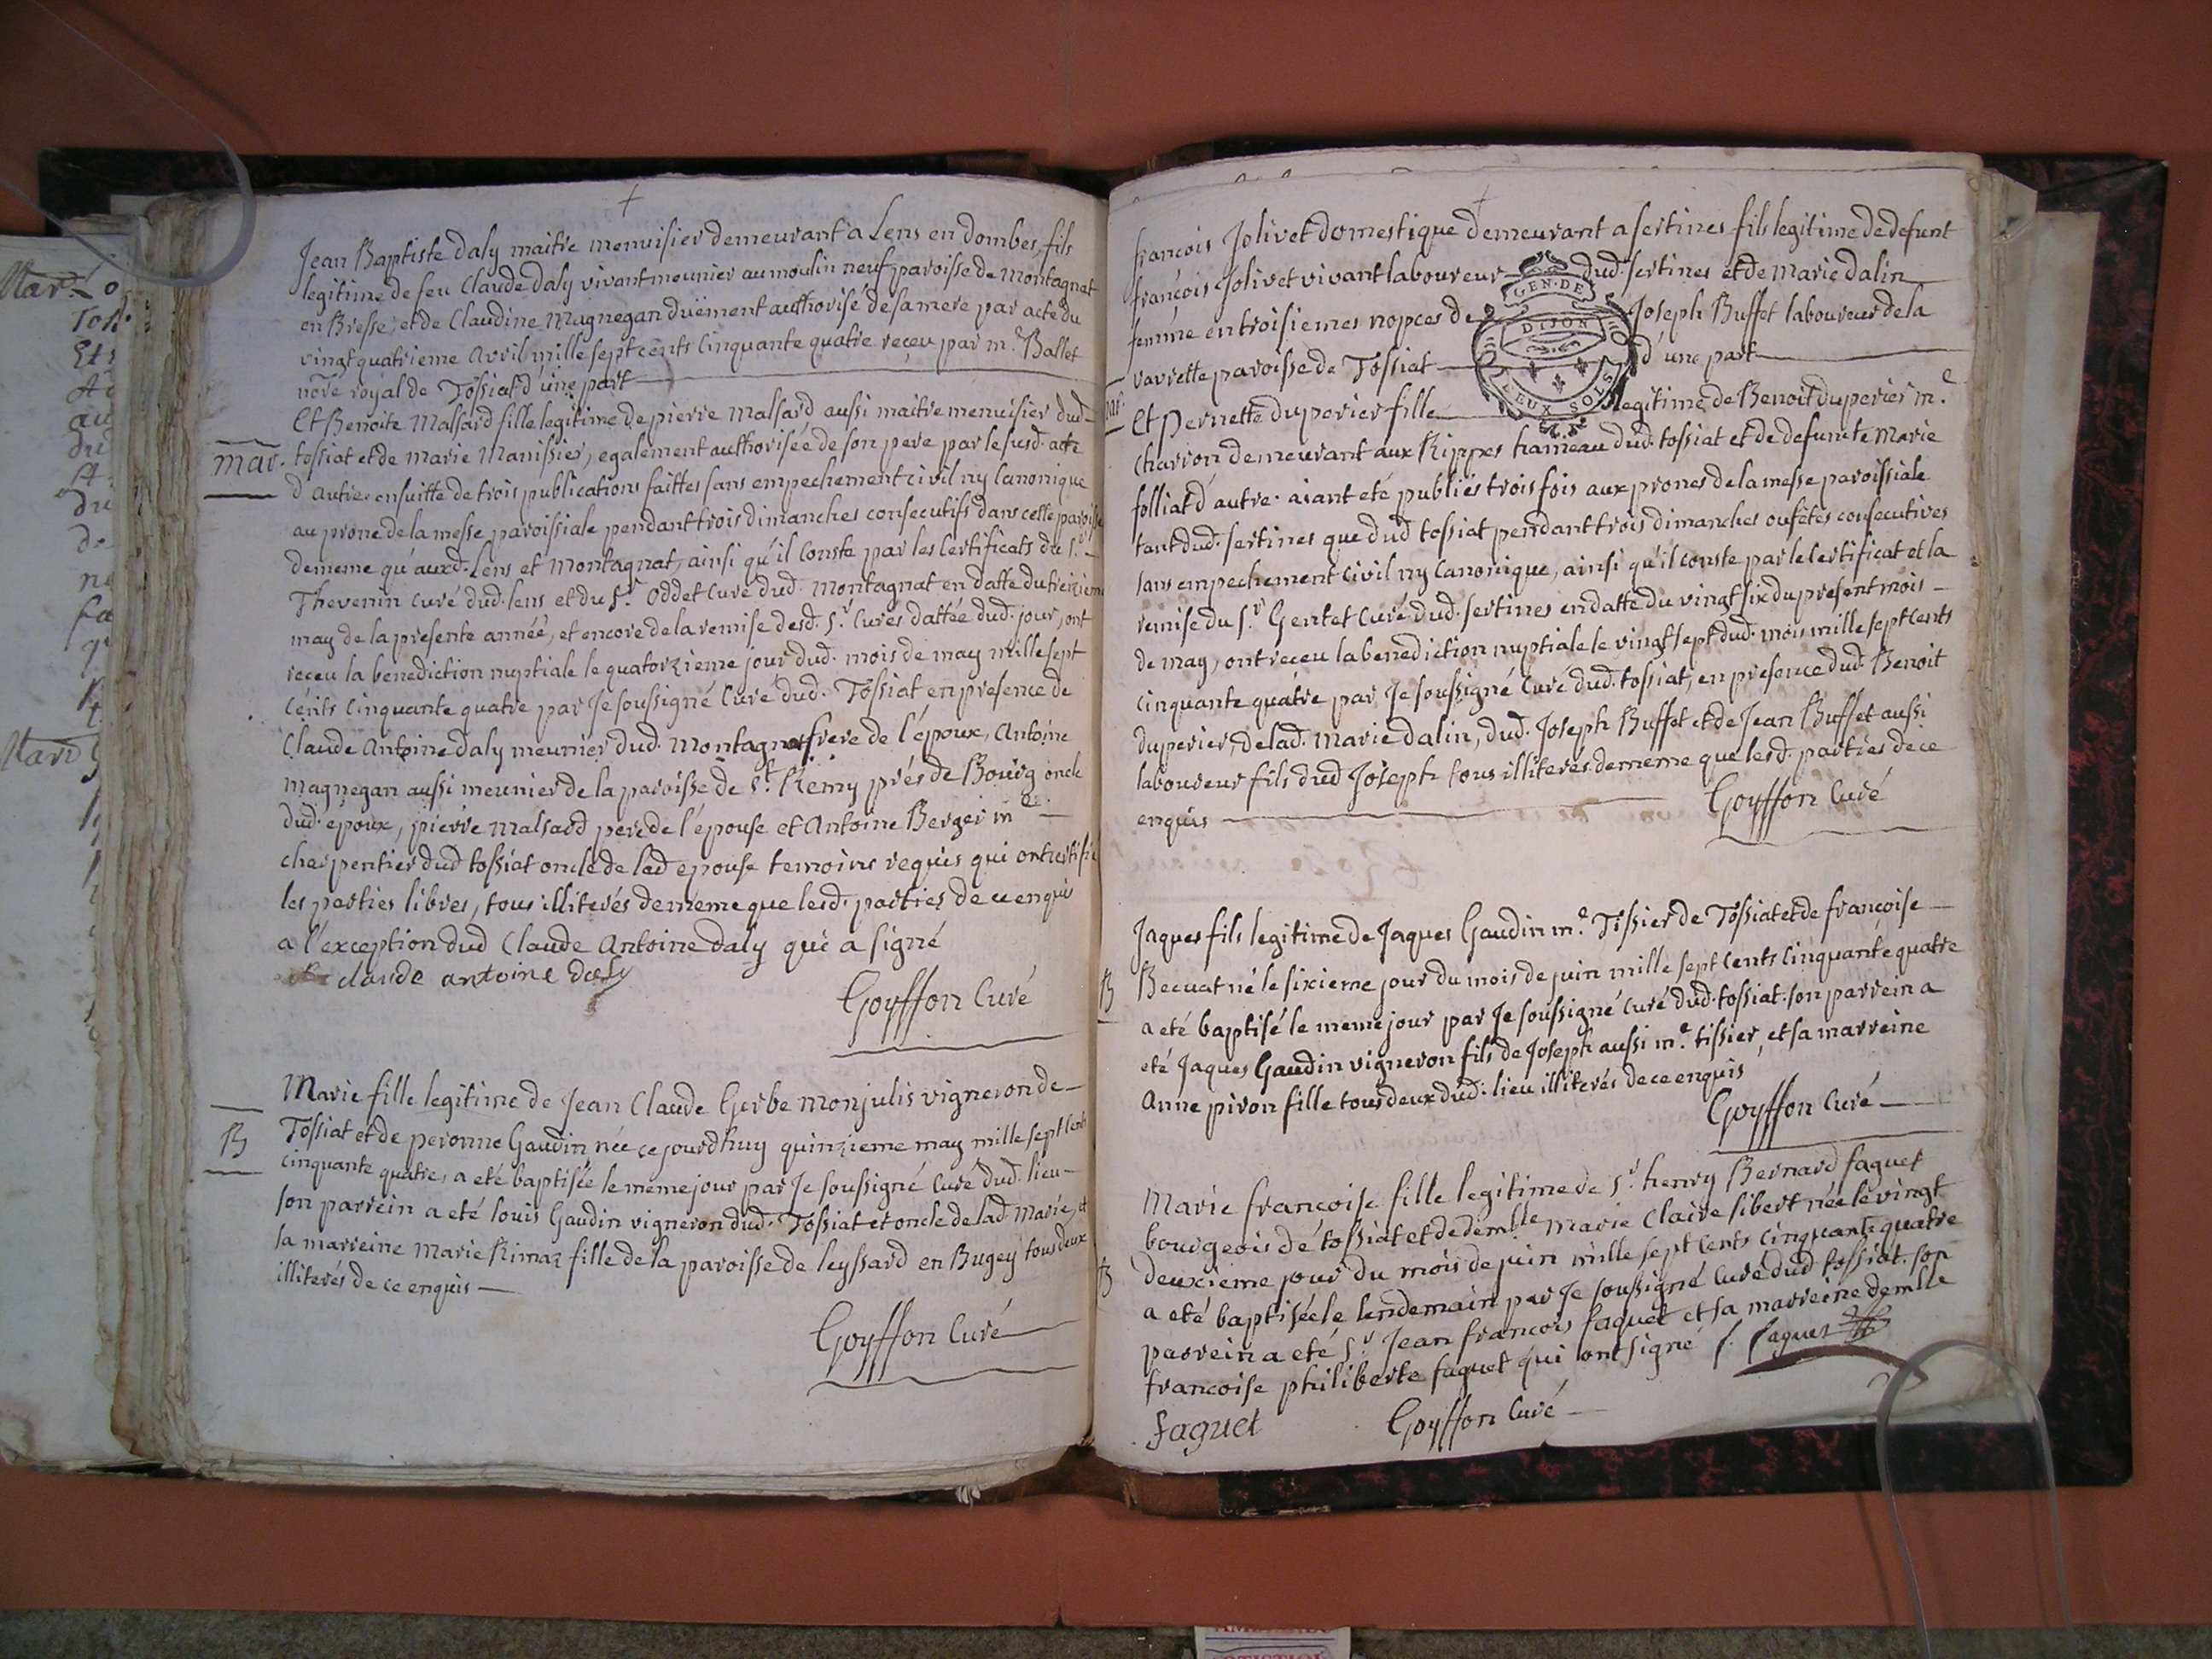 Jean Baptiste daly maitre menuisier demeurant a Lens en dombes, fils
legitime de feu Claude daly vivant meunier au moulin neuf, paroisse de Montagnat
en Bresse, et de Claudine Magnegan düement authorisé de sa mere par acte du
vingt quatrieme Avril mille sept cents Cinquante quatre reçeu par m.e Ballet
nore royal de Tossiat d'une part
Et Benoite Malsard fille legitime de pierre Malsard aussi maitre menuisier dud.
mar.
tossiat et de marie Manissier, egalement authorisée de son pere par le susd. acte
d'autre. ensuitte de trois publications faittes sans empechement civil ny Canonique
au prone de la messe paroissiale pendant trois dimanches consecutifs dans cette paroisse
de meme qu'auxd. Lens et Montagnat, ainsi qu'il Conste par les Certificats du s.r
Thevenin curé dud. lens et du s.r Oddet curé dud. Montagnat en datte du treizieme
may de la presente année, et encore de la remise desd. s.r Curés dattée dud. jour, ont
receu la benediction nuptiale le quatorzieme jour dud. mois de may mille sept
Cents Cinquante quatre par Je soussigné Curé dud. Tossiat en presence de
Claude Antoine daly meunier dud. Montagnat frere de l'époux, Antoine
magnegan aussi meunier de la paroisse de s.t Remy prés de Bourg oncle
dud. epoux, pierre Malsard pere de l'épouse et Antoine Berger m.e
charpentier dud tossiat oncle de lad epouse temoins requis qui ont certifié
les parties libres, tous illiterés de meme que lesd. parties de ce enquis
a l'exception dud Claude Antoine daly qui a signé
claude antoine daly
Goyffon Curé
Marie fille legitime de Jean Claude Gerbe monjulis vigneron de
B
Tossiat et de peronne Gaudin née ce jourdhuy quinzieme may mille sept cents
cinquante quatre, a eté baptisée le meme jour par Je soussigné Curé dud. lieu
son parrein a eté louis Gaudin vigneron dud. Tossiat et oncle de lad Marie, et
sa marreine Marie Rimaz fille de la paroisse de leyssard en Bugey tous deux
illiterés de ce enquis
Goyffon Curé
françois Jolivet domestique demeurant a sertines fils legitime de defunt
françois Jolivet vivant laboureur dud. sertines et de Marie dalin
femme en troisiemes nopces de Joseph Buffet laboureur de la
GEN. DE
DIJON
DEUX SOLS
varette paroisse de Tossiat d'une part
mar.
Et Pernette duperier fille legitime de Benoit duperier m.e
Charron demeurant aux Rippes hameau dud. tossiat et de defuncte Marie
folliat d'autre. aiant eté publiés trois fois aux prones de la messe paroissiale
tant dud. sertines que dud tossiat pendant trois dimanches ou fêtes consecutives
sans empechement civil ny Canonique, ainsi qu'il conste par le Certificat et la
remise du s.r Gentet Curé dud. sertines en datte du vingt six du present mois
de may, ont receu la benediction nuptiale le vingt sept dud. mois mille sept cents
cinquante quatre par Je soussigné Curé dud. tossiat, en presence dud. Benoit
duperier, de lad. Marie dalin, dud. Joseph Buffet et de Jean Buffet aussi
laboureur fils dud Joseph tous illiterés de meme que lesd. parties de ce
enquis
Goyffon Curé
Jaques fils legitime de Jaques Gaudin m.e Tissier de Tossiat et de francoise
B
Becuat né le sixieme jour du mois de juin mille sept Cents Cinquante quatre
a eté baptisé le meme jour par Je soussigné Curé dud. tossiat. son parrein a
eté Jaques Gaudin vigneron fils de Joseph aussi m.e tissier, et sa marreine
Anne piron fille tous deux dud. lieu illiterés de ce enquis
Goyffon Curé
Marie francoise fille legitime de s.r henry Bernard faguet
bourgeois de tossiat et de demlle Marie Claire sibert née le vingt
B
deuxieme jour du mois de juin mille sept Cents Cinquante quatre
a eté baptisée le lendemain par Je soussigné Curé dud tossiat. son
parrein a eté s.r Jean francois faguet et sa marreine demlle
francoise philiberte faguet qui ont signé f. faguet
faguet
Goyffon Curé